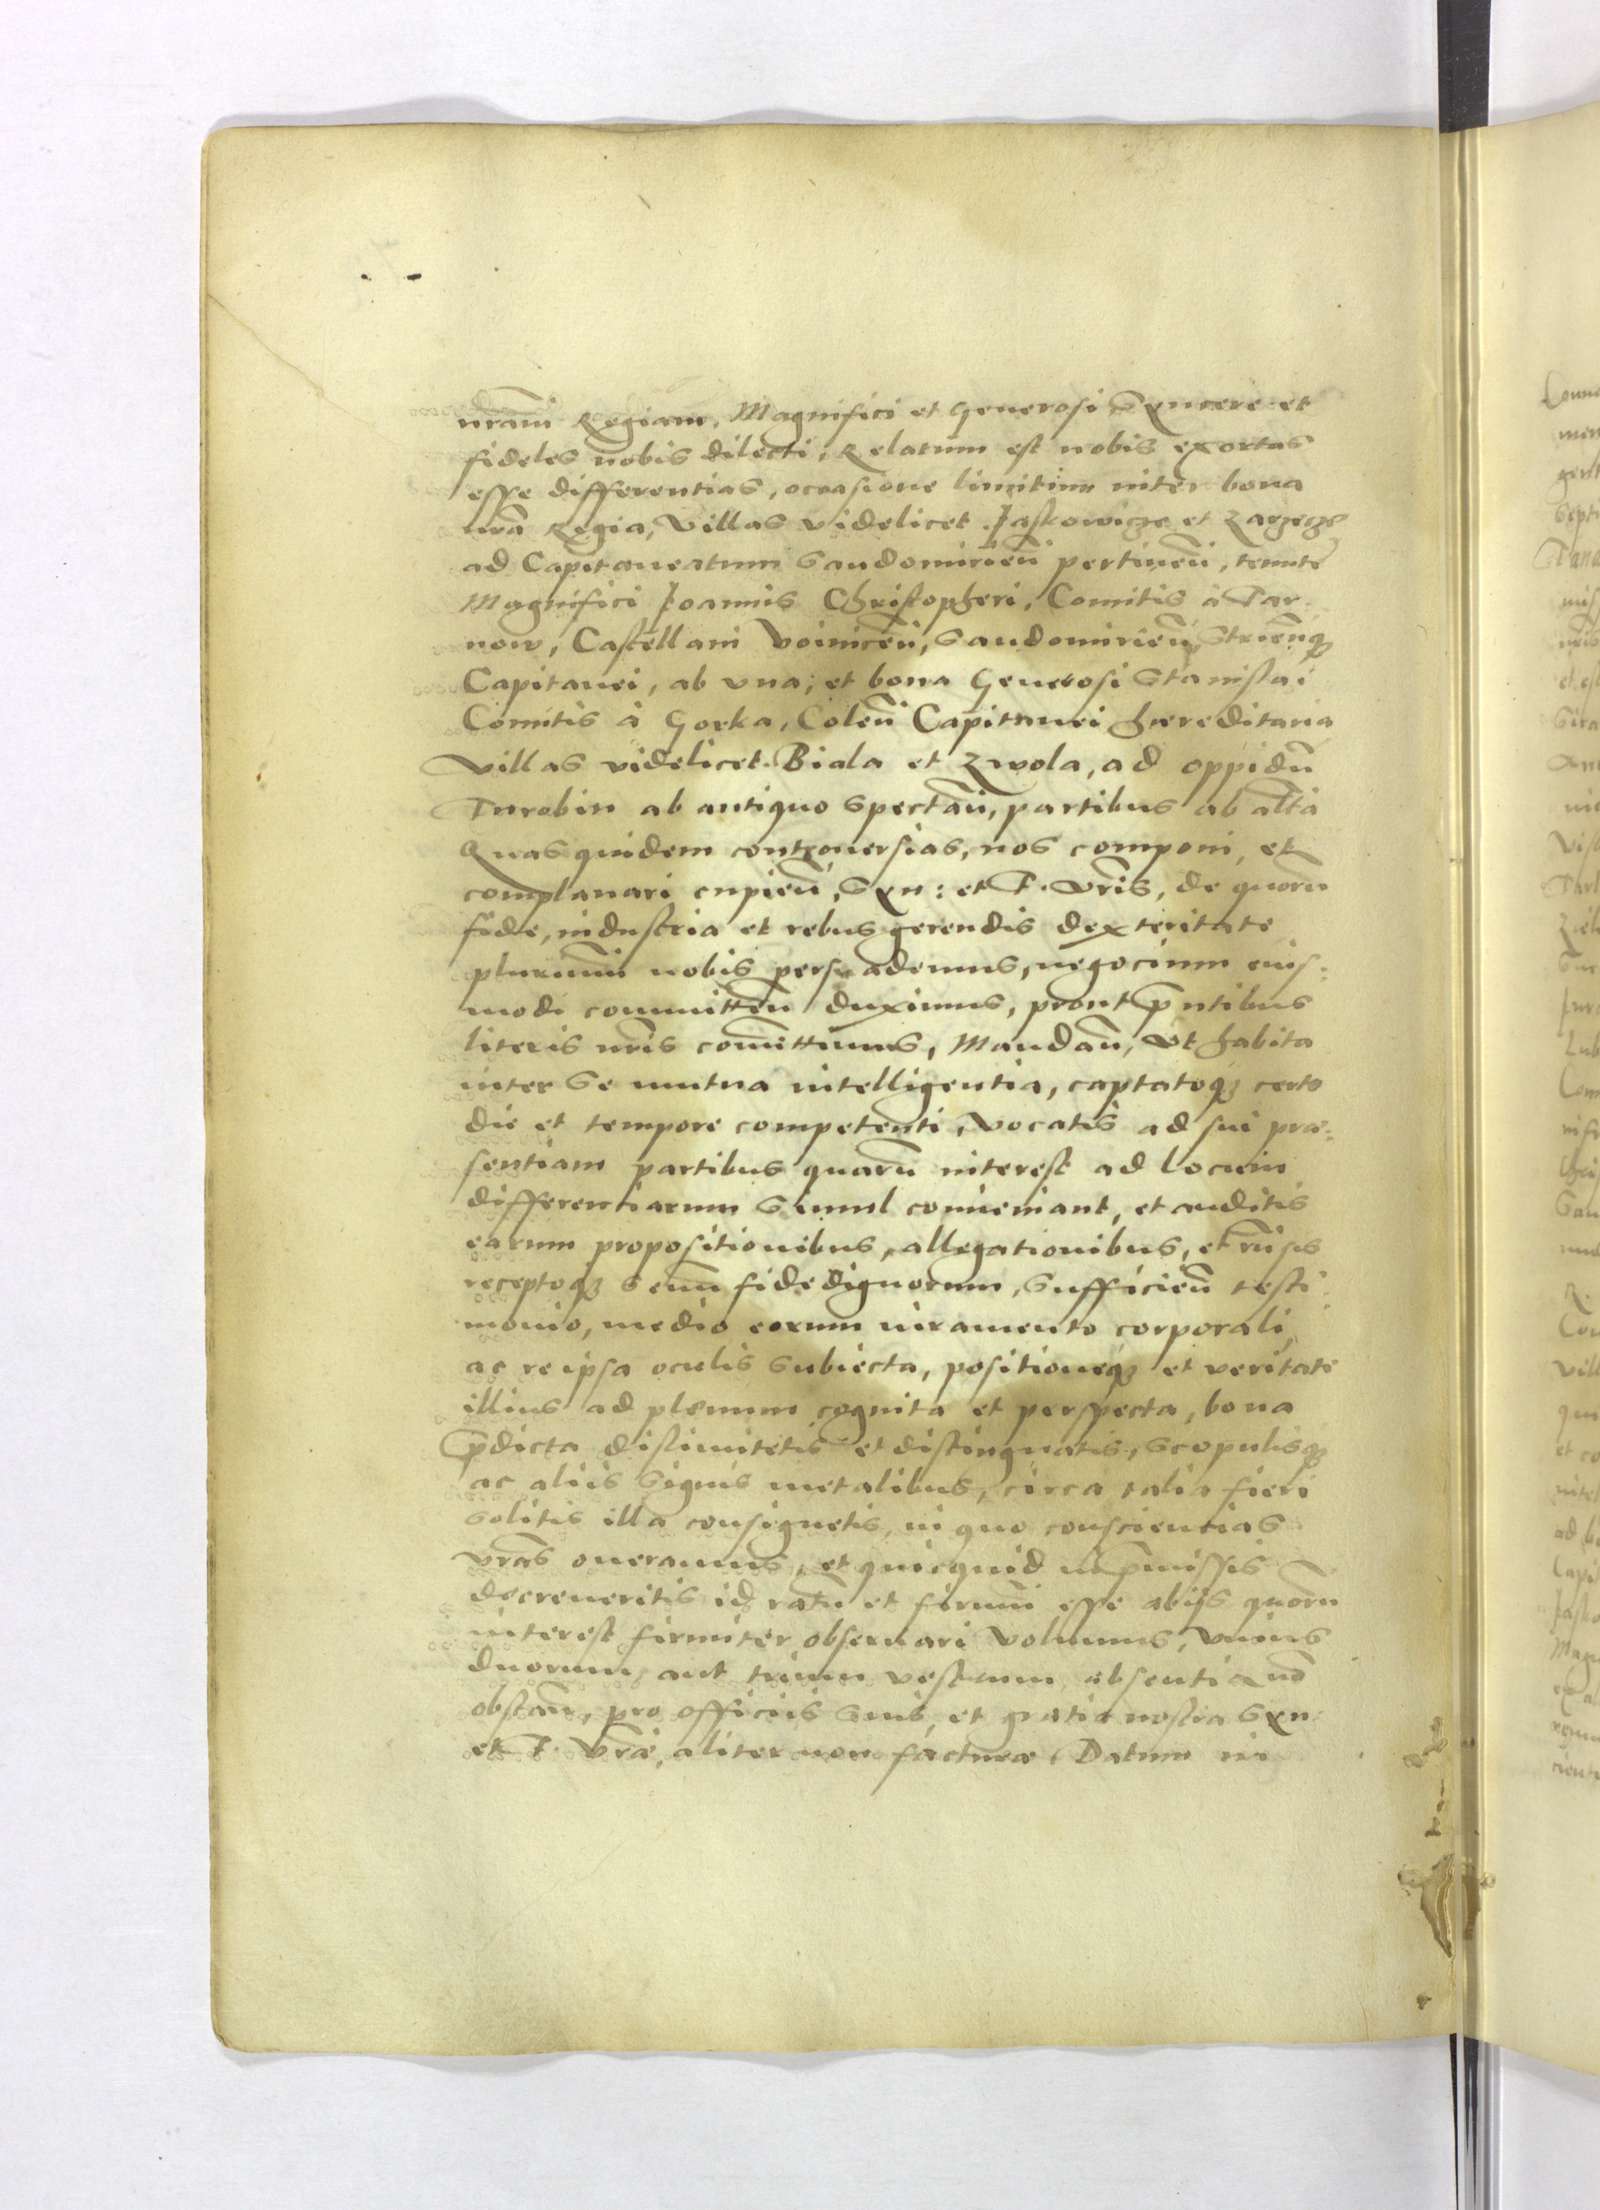 nrãm Regiam. Magnifici et Generosi Syncere et
fideles nobis dilecti, Relatum est nobis exortas
esse differentias, occasione limitum inter bona
nrã Regia, Villas videlicet Jaskowicze et Zarzecze
ad Capitaneatum Sandomirieñ pertineñ, tenute
Magnifici Joannis Christopheri, Comitis à Tar
now, Castellani Voiniceñ, Sandomirieñ, Strieñq3
Capitanei, ab vna; et bona Generosi Stanislai
Comitis à Gorka, Coleñ Capitanei haereditaria
Villas videlicet Biala et Zwola, ad oppidũ
Turobin ab antiquo Spectañ, partibus ab altã
Quas quidem controuersias, nos componi, et
complanari cupieñ, Syn: et F. Vris, de quorũ
fide, industria et rebus gerendis dexteritate
plurimũ nobis persuademus, negocium eius-
modi committeñ duximus, prout pñtibus
literis nris com̃ittimus, Mandañ, Vt habita
inter Se mutua intelligentia, captatoq3 certo
die et tempore competenti, Vocatis ad sui prae-
sentiam partibus quarũ interest ad locum
differentiarum Simul conueniant, et auditis
earum propositionibus, allegationibus, et rñsis
receptoq3 Senũ fidedignorum, Sufficieñ testi
monio, medio eorum iuramento corporali,
ac re ipsa oculis Subiecta, positioneq3 et veritate
illius ad plenum cognita et perspecta, bona
p̃dicta dislimitetis et distinguatis, Scopulisq3
ac aliis Signis metalibus, circa talia fieri
Solitis illa consignetis, in quo consciencias
vrãs oneramus, et quicquid in p̃missis
decreueritis id ratũ et firmũ esse ab iis quorũ
interest firmiter obseruari Volumus, Vnius
duorum, aut trium vestrum absentia nõ
obstañ, pro officiis Suis, et gratia nostra Syn
et F. Vrae, aliter non facturae. Datum in